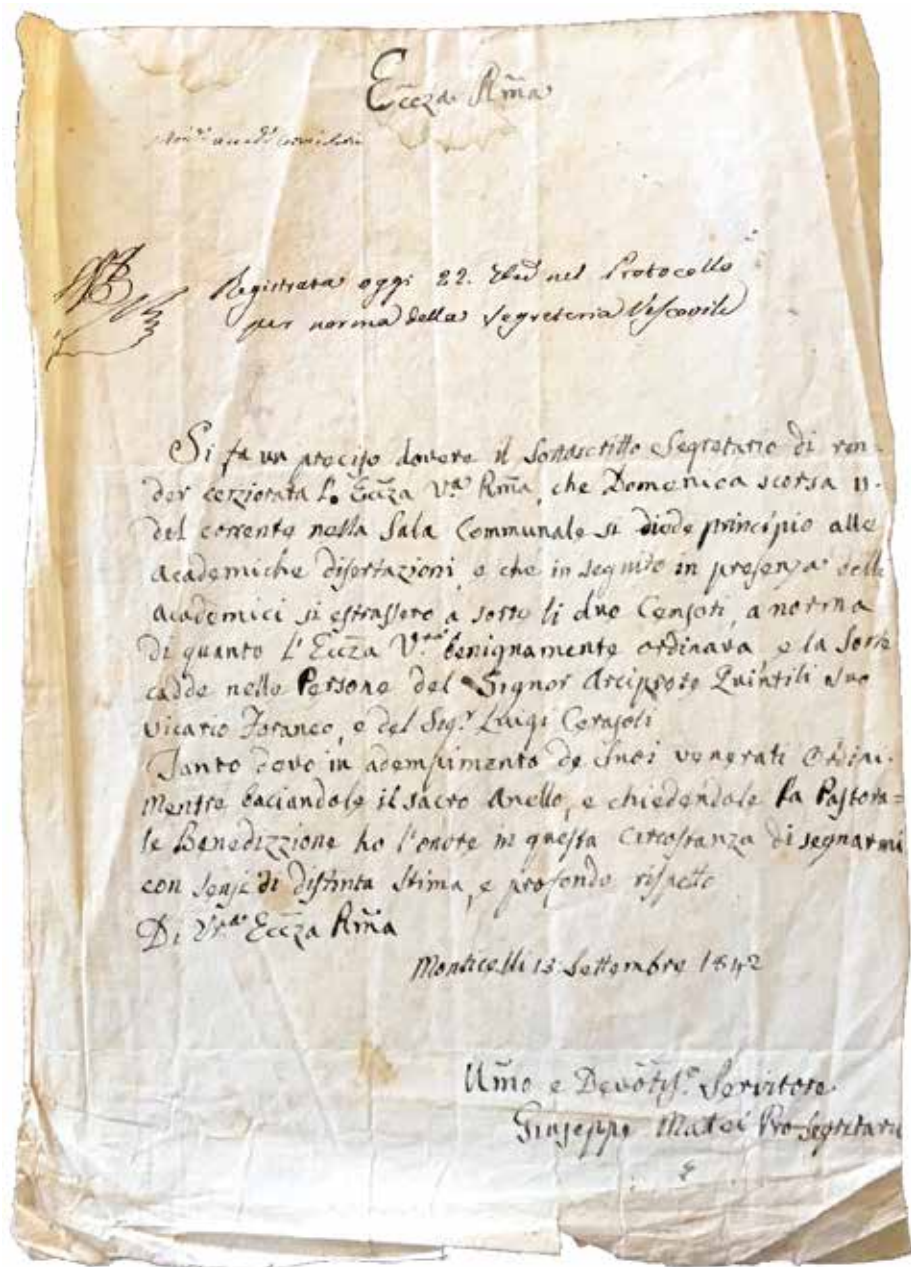 Eccza Rma
Registrata oggi 22. nel Protocollo
per norma della Segreteria Vescovile
Si fa un preciso dovere il Sottoscritto Segretario di ren-
der cerziorata l'Eccza Vra Rma, che Domenica scorsa 11.
del corrente nella Sala Communale si diede principio alle
academiche disertazioni, e che in seguito in presenza delli
academici si estrassero a sorte li due Censori, a norma
di quanto l'Eccza Vra benignamente ordinava e la Sorte
cadde nelle Persone del Signor Arciprete Quintili suo
Vicario Foraneo, e del Sigr Luigi Cerasoli
Tanto devo in adempimento de suoi venerati Ordini.
Mentre baciandole il sacro Anello, e chiedendole la Pastora=
le Benedizzione ho l'onore in questa Circostanza di segnarmi
con sensi di distinta stima, e profondo rispetto
Di Vra Eccza Rma
Monticelli 13 Settembre 1842
Umo e Devotiss.o Servitore
Giuseppe Matei Pro Segretario